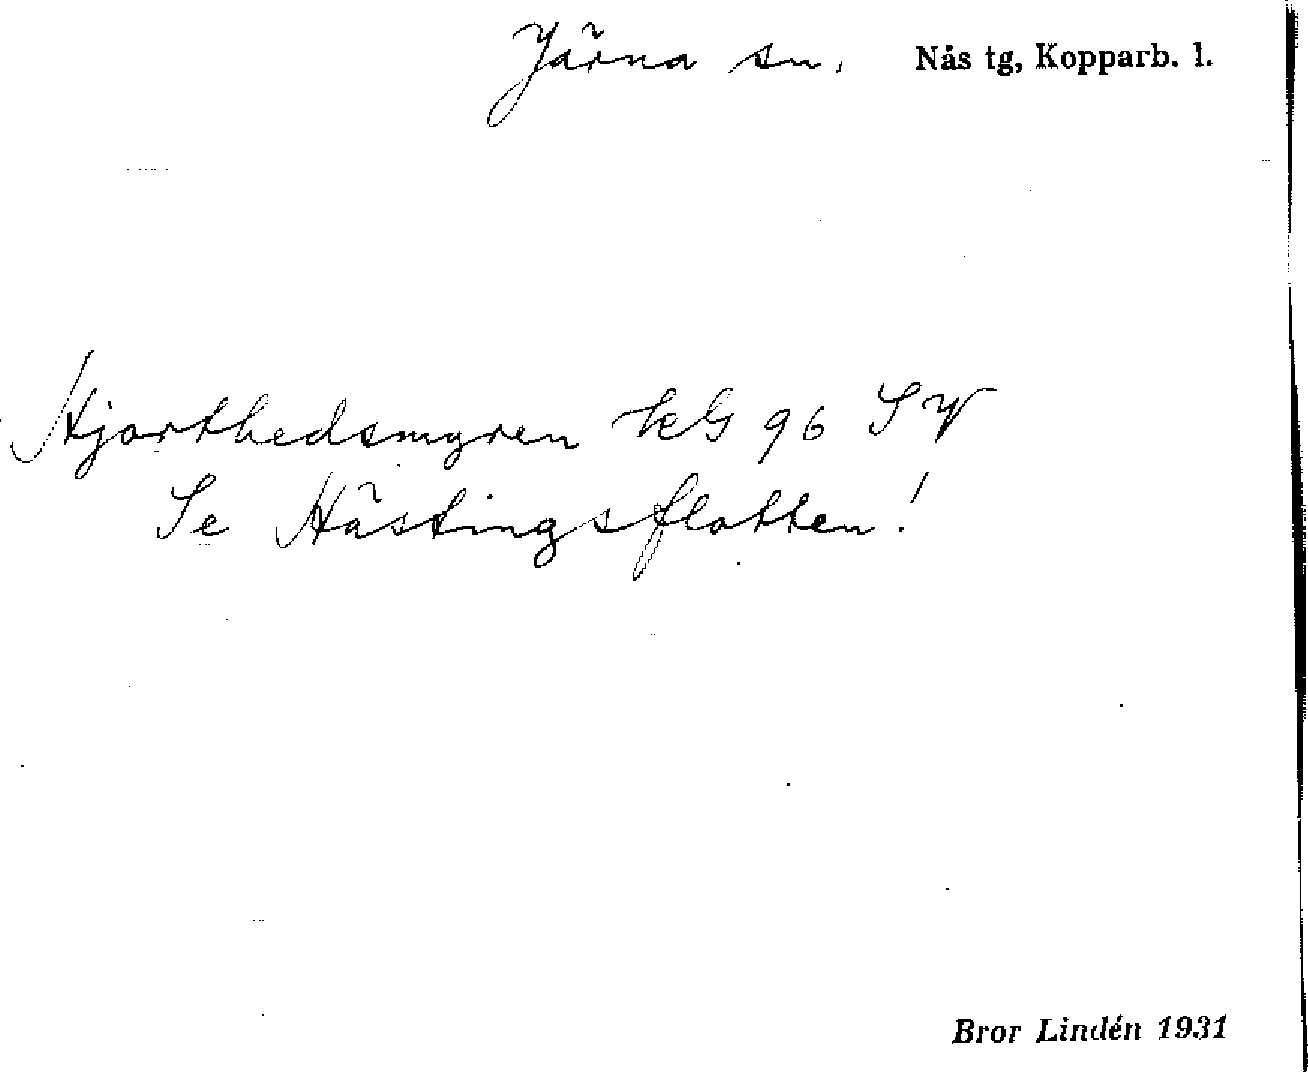 Järna sn. Nås tg, Kopparb. l.
Hjorthedsmyren kG 96 SV
Se Hästingsflotten!
Bror Lindén 1931